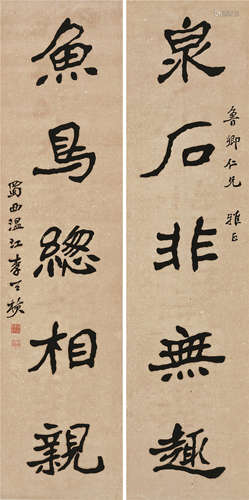 泉石非無趣
魯卿仁兄 雅正
魚鳥總相親
蜀西溫江李天